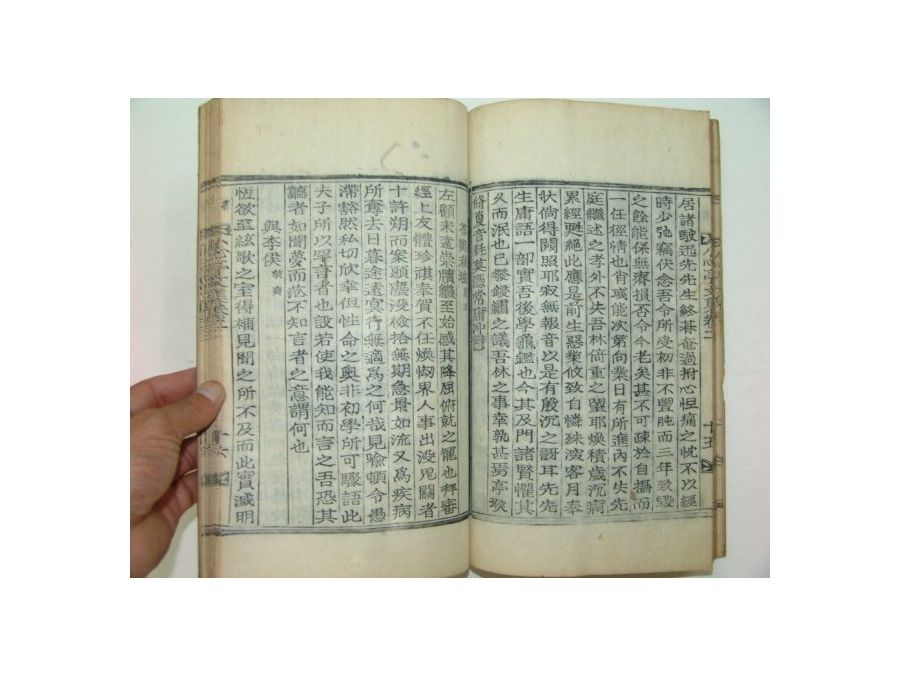 小心亭文集卷二
十五
居諸駛迅先先生終朞奄過拊心怛痛之忱不以經
時少弛竊伏念吾令所受初非不豐盹而三年致毁
之餘能保無癠損否今今老矣甚不可疎於自攝而
一任徑情也肖彧能次第向業日有所進內不失先
庭繼述之孝外不失吾林倚重之望耶煥積歲沉痾
累經更絕此應是前生惡業攸致自憐殊深客月奉
狀倘得關照耶寂無報音以是有殷沉之訝耳先先
生庸語一部實吾後學龜鑑也今其及門諸賢懼其
久而泯也已發鋟繡之議吾林之事幸孰甚焉亭
左顧未遂崇牘繼至始感其降屈俯就之寵也拜審
經上友體珍祺奉賀不任煥悩界人事出沒鬼關者
十許朔而案頭塵沒檢拾無期急景如流又爲疾病
所奪去日暮途遠冥行無適爲之何哉見喩頓令愚
滯豁然私切欣幸但性命之奧非初學所可驟語此
夫子所以罕言者也設若使我能知而言之吾恐其
聽者如聞夢而茫不知言者之意謂何也
與李侯
恆欲至絃歌之室得補見聞之所不及而此實滅明